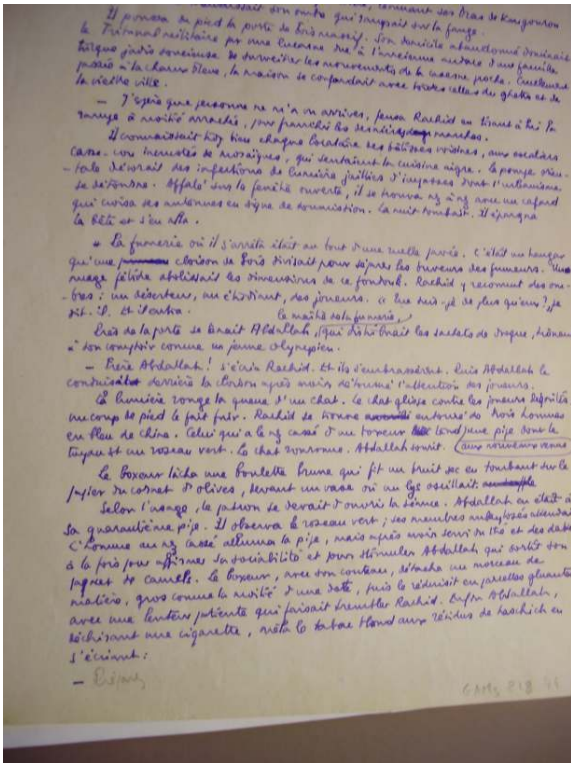 son ombre qui rampait sur la fange.
Il poussa du pied la porte de bois massif. Son domicile abandonné dominait
le Tribunal militaire par une lucarne due à l'ancienne audace d'une famille
turque jadis soucieuse de surveiller les mouvements de la caserne proche.
passée à la chaux bleue, la maison se confondait avec toutes celles du ghetto et de
la vieille ville.
— J'espère que personne ne m'a vu arriver, pensa Rachid en tirant à lui la
rampe à moitié arrachée, pour franchir les dernières marches.
Il connaissait trop bien chaque locataire des bâtisses voisines, aux escaliers
casse-cou incrustés de mosaïques, qui sentaient la cuisine aigre. La pompe orien-
-tale dévorait des infections de lumière jaillies d'impasses dont l'urbanisme
se détourne. Affalé sur la fenêtre ouverte, il se trouva nez à nez avec un cafard
qui croisa ses antennes en signe de soumission. La nuit tombait. Il épargna
la bête et s'en alla.
* La fumerie où il s'arrêta était au bout d'une ruelle pavée. C'était un hangar
qu'une cloison de bois divisait pour séparer les buveurs des fumeurs. Un
nuage fétide abolissait les dimensions de ce fondouk. Rachid y reconnut des om-
-bres : un déserteur, un étudiant, des joueurs. « Que suis-je de plus qu'eux ? » se
dit-il. Et il entra.
le maître de la fumerie,
Près de la porte se tenait Abdallah, qui distribuait les sachets de drogue,
à son comptoir comme un jeune olympien.
— Frère Abdallah ! s'écria Rachid. Et ils s'embrassèrent. Puis Abdallah le
conduisit derrière la cloison après avoir détourné l'attention des joueurs.
La lumière ronge la queue d'un chat. Le chat glisse contre les joueurs
un coup de pied le fait fuir. Rachid se trouve entouré de trois hommes
en bleu de Chine. Celui qui a le nez cassé d'un boxeur tend une pipe dont le
tuyau est un roseau vert. Le chat ronronne. Abdallah sourit. aux nouveaux venus
Le boxeur lâcha une boulette brune qui fit un bruit sec en tombant sur le
papier du cornet d'olives, devant un vase où un lys oscillait
Selon l'usage, le patron se devait d'ouvrir la séance. Abdallah en était à
sa quarantième pipe. Il observa le roseau vert ; ses membres ankylosés
L'homme au nez cassé alluma la pipe, mais après avoir servi du thé et des dattes
à la fois pour affirmer sa sociabilité et pour stimuler Abdallah qui sortit son
paquet de camels. Le boxeur, avec son couteau, détacha un morceau de
matière, gros comme la moitié d'une datte, puis le réduisit en parcelles gluantes
avec une lenteur patiente qui faisait trembler Rachid. Enfin Abdallah,
déchirant une cigarette, mêla le tabac blond aux résidus de haschich en
s'écriant :
—